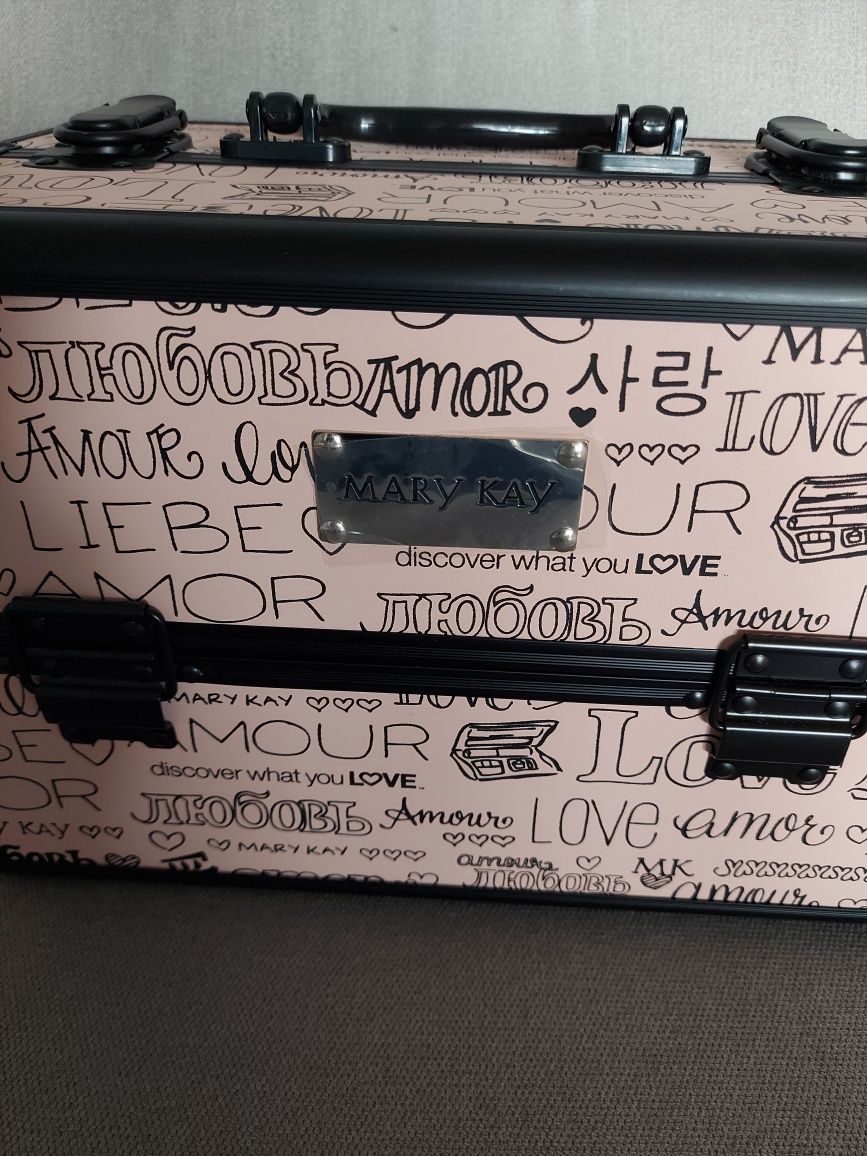 LOVE
discover what you LOVE
AMOUR LOVE ♡ MARY KAY ♡♡♡ Love
MA
ЛЮбОВЬ AMOR 사랑
LOVE
AMOUR lov
♡♡♡
MARY KAY
LIEBE OUR
discover what you LOVE
AMOR ЛЮбОВЬ Amour
MARY KAY ♡♡♡ LOVE
AMOUR
LOVE
discover what you LOVE
OR ЛЮбОВЬ Amour LOVE amor
KAY ♡♡ ♡ ♡ MARY KAY ♡♡♡ ♡♡♡
amour ♡ MK
ЛЮбОВЬ amour